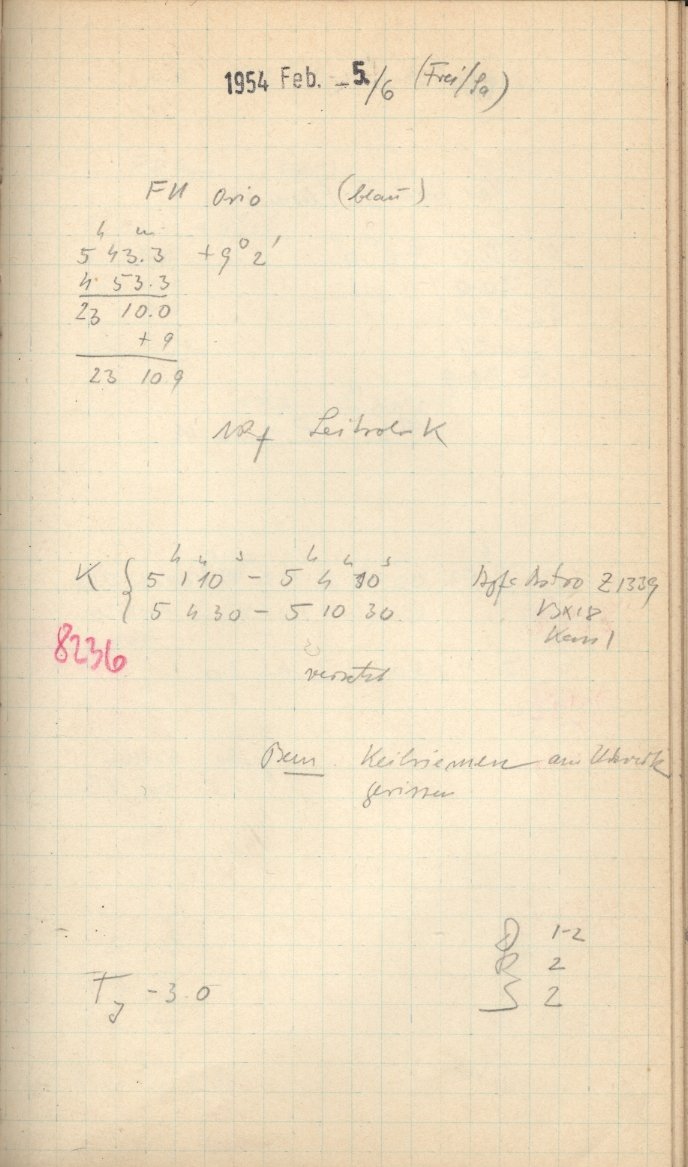 1954 Feb. -5./6 (Frei/Sa)
FU Orio (blau)
h m
5 43.3 +9° 2'
4 53.3
23 10.0
+ 9
23 10 9
K
h m s h m s
K { 5 1 10 - 5 4 10 Agfa Astro Z 1339
5 4 30 - 5 10 30 13x18
8236 Kass 1
versetzt
Bem Keilriemen am Uhrwerk
gerissen
D 1-2
R 2
T -3.0 S 2